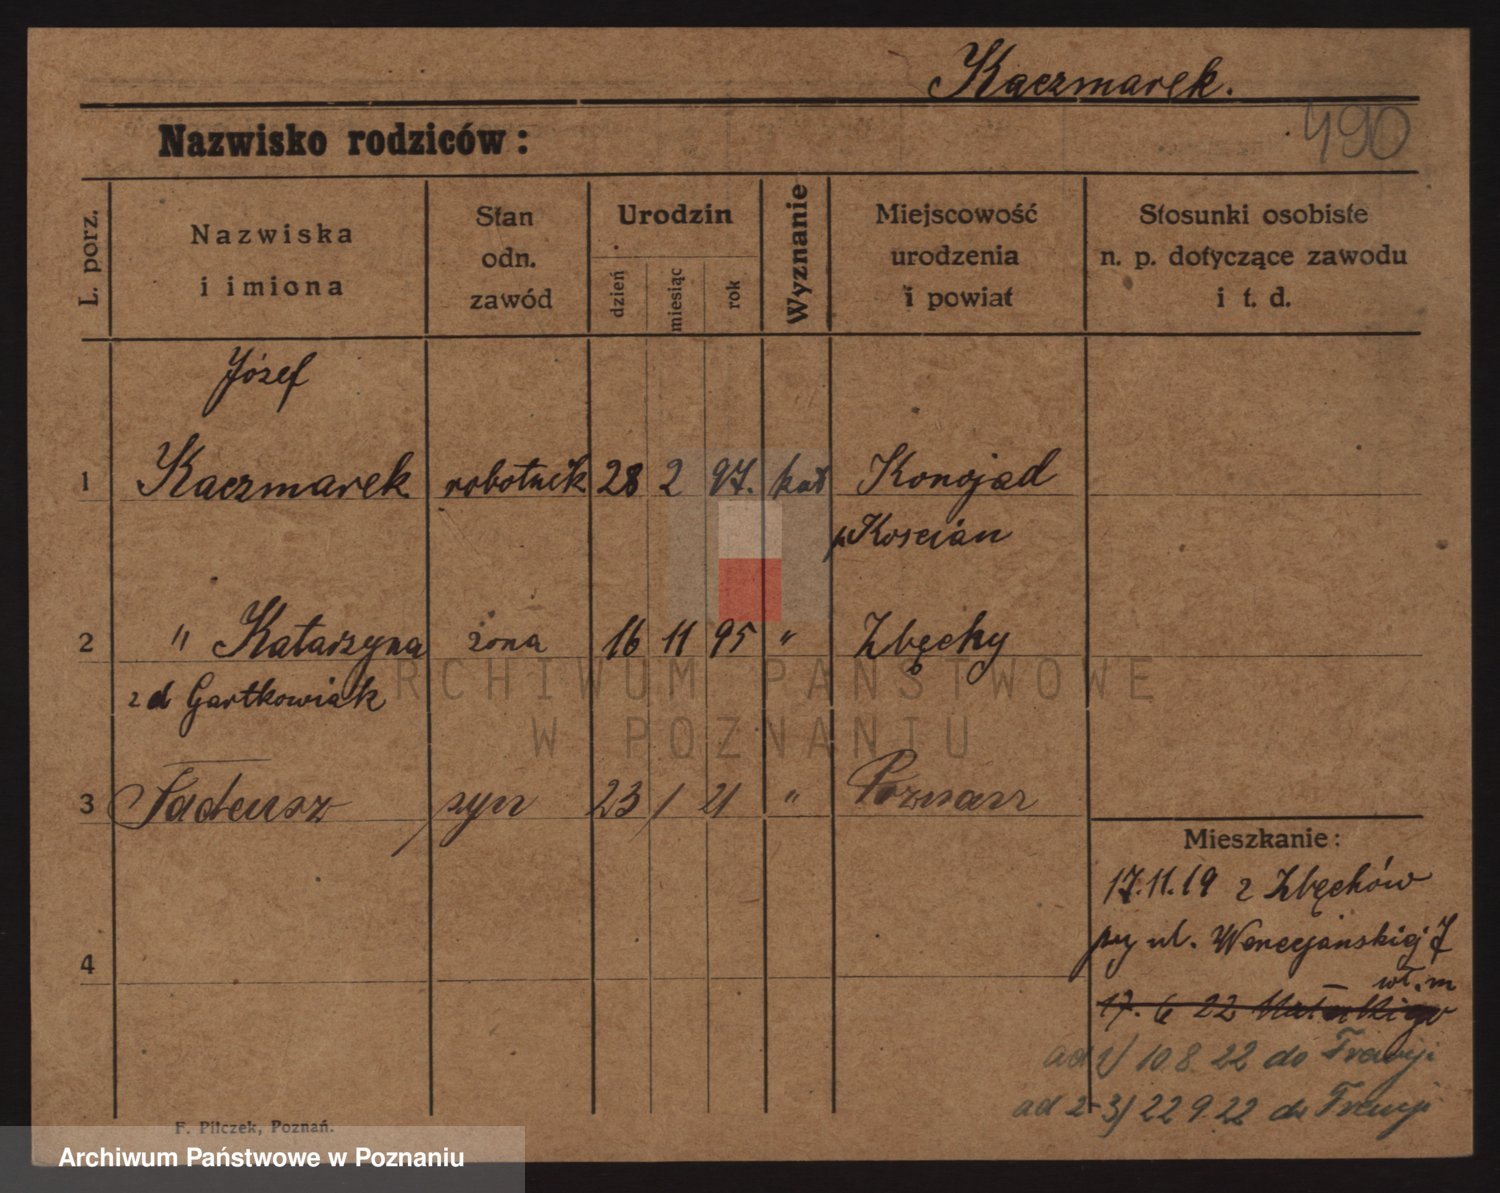 Kaczmarek.
Nazwisko rodziców:
490
L. porz.
Nazwiska
i imiona
Stan
odn.
zawód
Urodzin
dzień
miesiąc
rok
Wyznanie
Miejscowość
urodzenia
i powiat
Stosunki osobiste
n. p. dotyczące zawodu
i t. d.
Józef
1 Kaczmarek robotnik 28 2 97. kat Konojad
p. Koscian
2 " Katarzyna żona 16 11 95 " Zbęchy
z d Gartkowiak
3 Tadeusz syn 23 1 21 " Poznań
Mieszkanie:
17.11.19 z Zbęchów
4
przy ul. Wenecjańskiej 7
wł. m
17. 6 22
ad 1) 10.8.22 do Francji
ad 2-3) 22 9 22 do Francji
F. Pilczek, Poznań.
ARCHIWUM PAŃSTWOWE
W POZNANIU
Archiwum Państwowe w Poznaniu